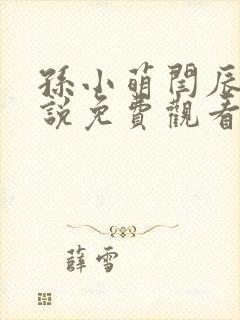 孫小萌閆辰
說免費觀看
薛雪